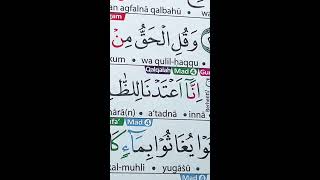 an agfalnā qalbahū • wa
gam
وَقُلِ الْحَقُّ مِنْ
kum • wa qulil-ḥaqqu •
Qalqalah Mad 4 Gu
اِنَّآ اَعْتَدْنَا لِلظّٰ
nārā(n) • a‘tadnā • innā
fa' Mad 4
وْا يُغَاثُوْا بِمَاۤءٍ كَا
kal-muhli • yugāṡū •
Mad 4